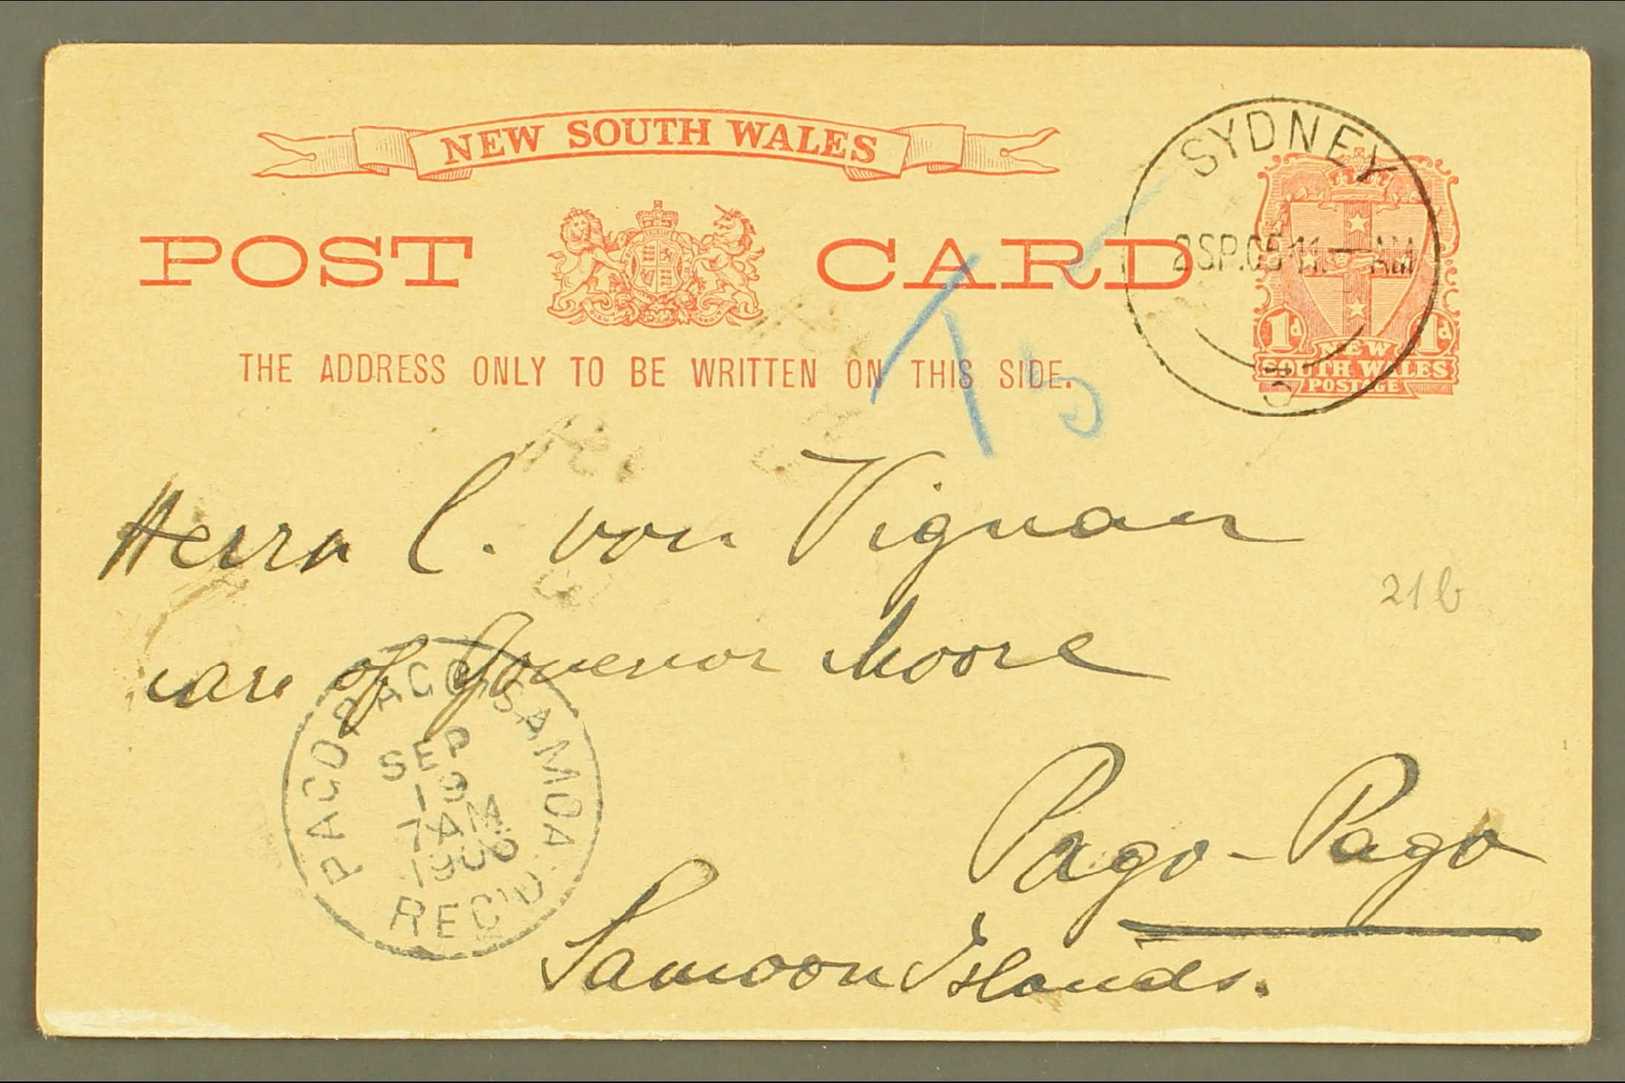 NEW SOUTH WALES
POST CARD
THE ADDRESS ONLY TO BE WRITTEN ON THIS SIDE.
SYDNEY
2 SP.05 11 — AM
1d 1d
NEW
SOUTH WALES
POSTAGE
T 5
Herrn C. von Vignau
care of Governor Moore
21b
Pago-Pago
Samoan Islands.
PAGO PAGO, SAMOA.
SEP
19
7 AM
REC'D.